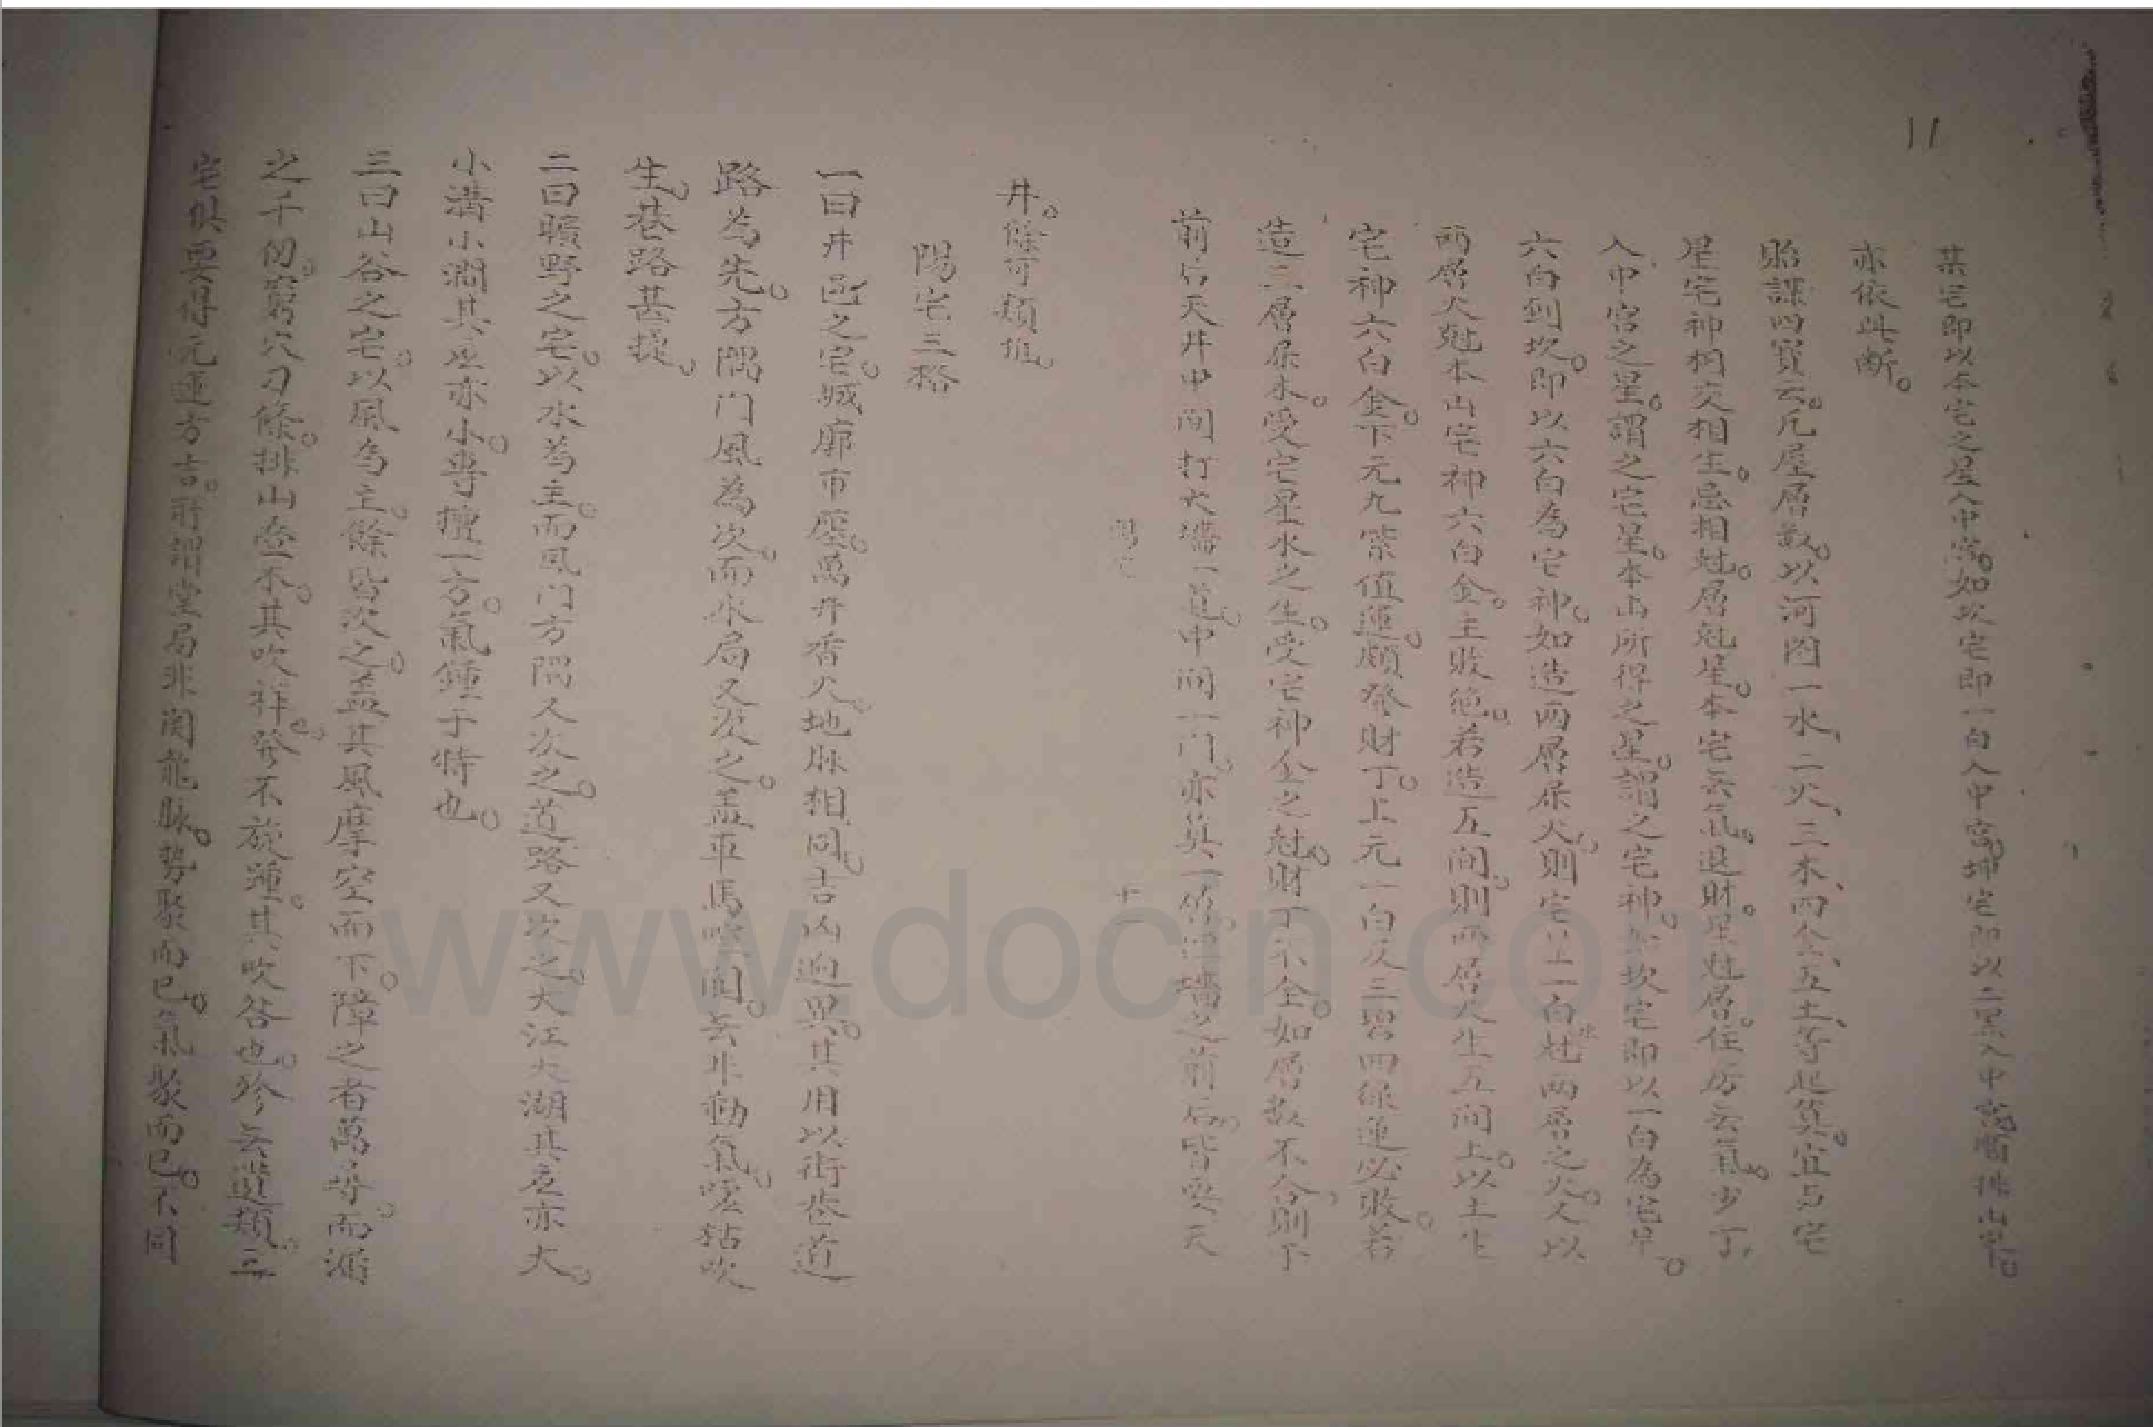 11
某宅即以本宅之星入中宮。如坎宅即一白入中宮。坤宅即以二黑入中宮。
亦依此断。
貽謀四寳云。凡屋層数。以河圖一水、二火、三木、四金、五土、等起算。宜与宅
星宅神相交相生。忌相尅。層尅星。本宅无氣。退財。星尅層。住房无氣。少丁。
入中宮之星。謂之宅星。本山所得之星。謂之宅神。如坎宅即以一白為宅星。
六白到坎。即以六白為宅神。如造两層屬火。則宅星一白水尅两層之火。又以
两層火尅本山宅神六白金。主敗絶。若造五间。則两層火生五间土。以土生
宅神六白金。下元九紫值運。頗發財丁。上元一白及三碧四綠運必敗。若
造三層屬木。受宅星水之生。受宅神金之尅。財丁不全。如層数不合。則于
前后天井中间打大墻一道。中间一门。亦算一層。墻之前后。皆要天
井。餘可類推。
十一
陽宅三格
一曰井邑之宅。城廓市廛。萬井香火。地脉相同。吉凶迥異。其用以街巷道
路為先。方隅门風為次。而水局又次之。盖車馬喧闐。无非動氣。噓枯吹
生。巷路甚捷。
二曰曠野之宅。以水為主。而風门方隅又次之。道路又次之。大江大湖其应亦大。
小溝小澗其应亦小。專擅一方。氣鍾于特也。
三曰山谷之宅。以風為主。餘皆次之。盖其風摩空而下。障之者萬尋。而漏
之千仞。窮穴刁條。排山壑木。其吹祥發不旋踵。其吹咎也。殄无遺類。三
宅只要得元運方吉。所謂堂局非関龍脉。勢聚而已。氣聚而已。不同
www.docin.com